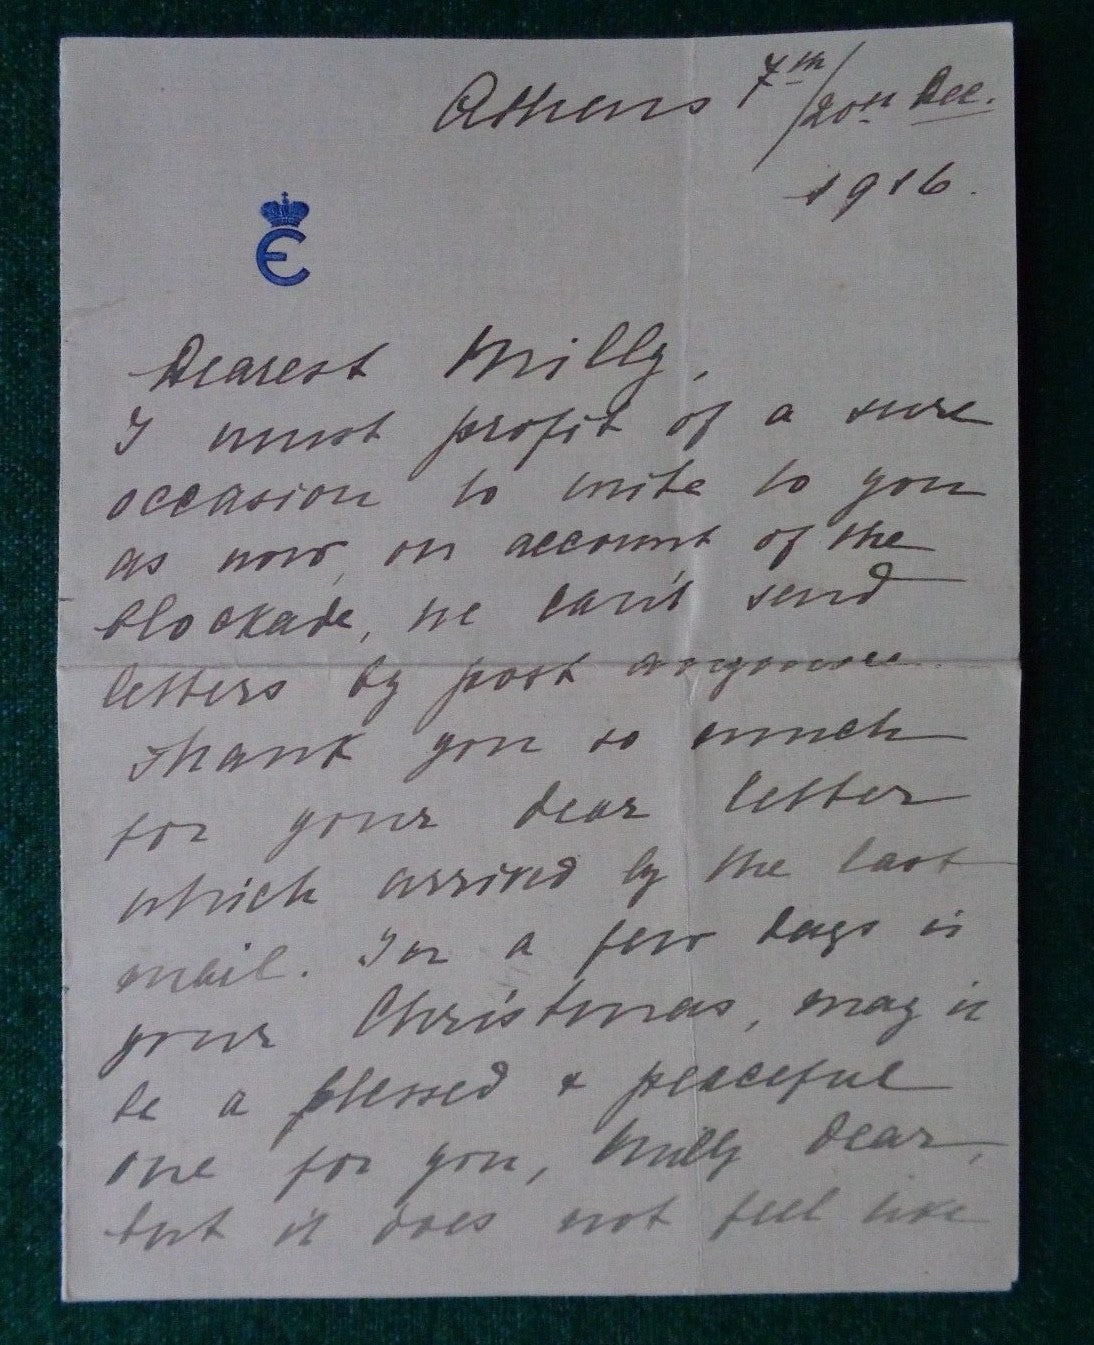 Athens 7th/20th Dec.
1916.
Є
Dearest Milly,
I must profit of a sure
occasion to write to you
as now, on account of the
blockade, we can't send
letters by post anymore.
Thank you so much
for your dear letter
which arrived by the last
mail. In a few days is
your Christmas, may it
be a blessed & peaceful
one for you, Milly dear,
but it does not feel like